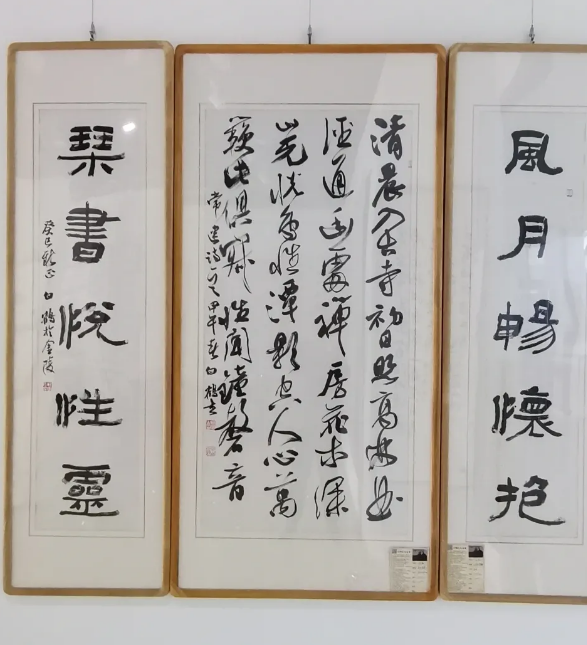 風月暢懷抱
清晨入古寺初日照高林曲
徑通幽處禪房花木深
山光悅鳥性潭影空人心萬
籟此俱寂惟聞鐘磬音
常建詩一首甲午春白鶴書
琴書悅性靈
癸巳新正白鶴於金陵